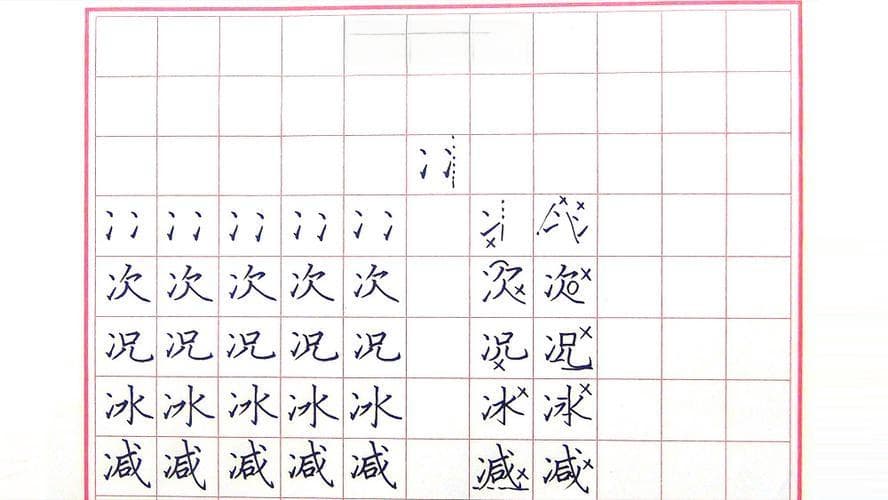 冫冫
冫冫 冫冫 冫冫 冫冫 冫冫 冫 冫冫
次 次 次 次 次 次 次
况 况 况 况 况 况 况
冰 冰 冰 冰 冰 冰 冰
减 减 减 减 减 减 减